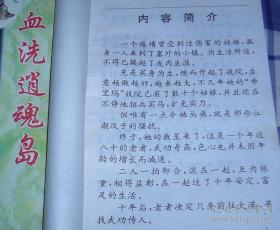 血洗逍魂岛
内容简介
一个感情曾受到过伤害的姑娘,孤
身一人来到了塞外的小镇。为生活所迫,
不得已操起了皮肉生涯。
先是卖身为生,继而开起了妓院,生
意越做越好,越来越大,不几年她的“香
里玛”妓院已有了数十个姑娘,并且还在
不停地招兵买马,扩充实力。
但唯有一点令她头痛,就是那些江
湖汉子的骚扰。
终于,她的救星来了,这是一个年近
八十的老者,武功奇高,色心也并未因年
龄的增长而减退。
二人一拍即合,混在一起,互为依
重,相得益彰,在一起过了十年安定、富
足的生活。
十年后,老者决定只身前往大漠,寻
找武功传人。